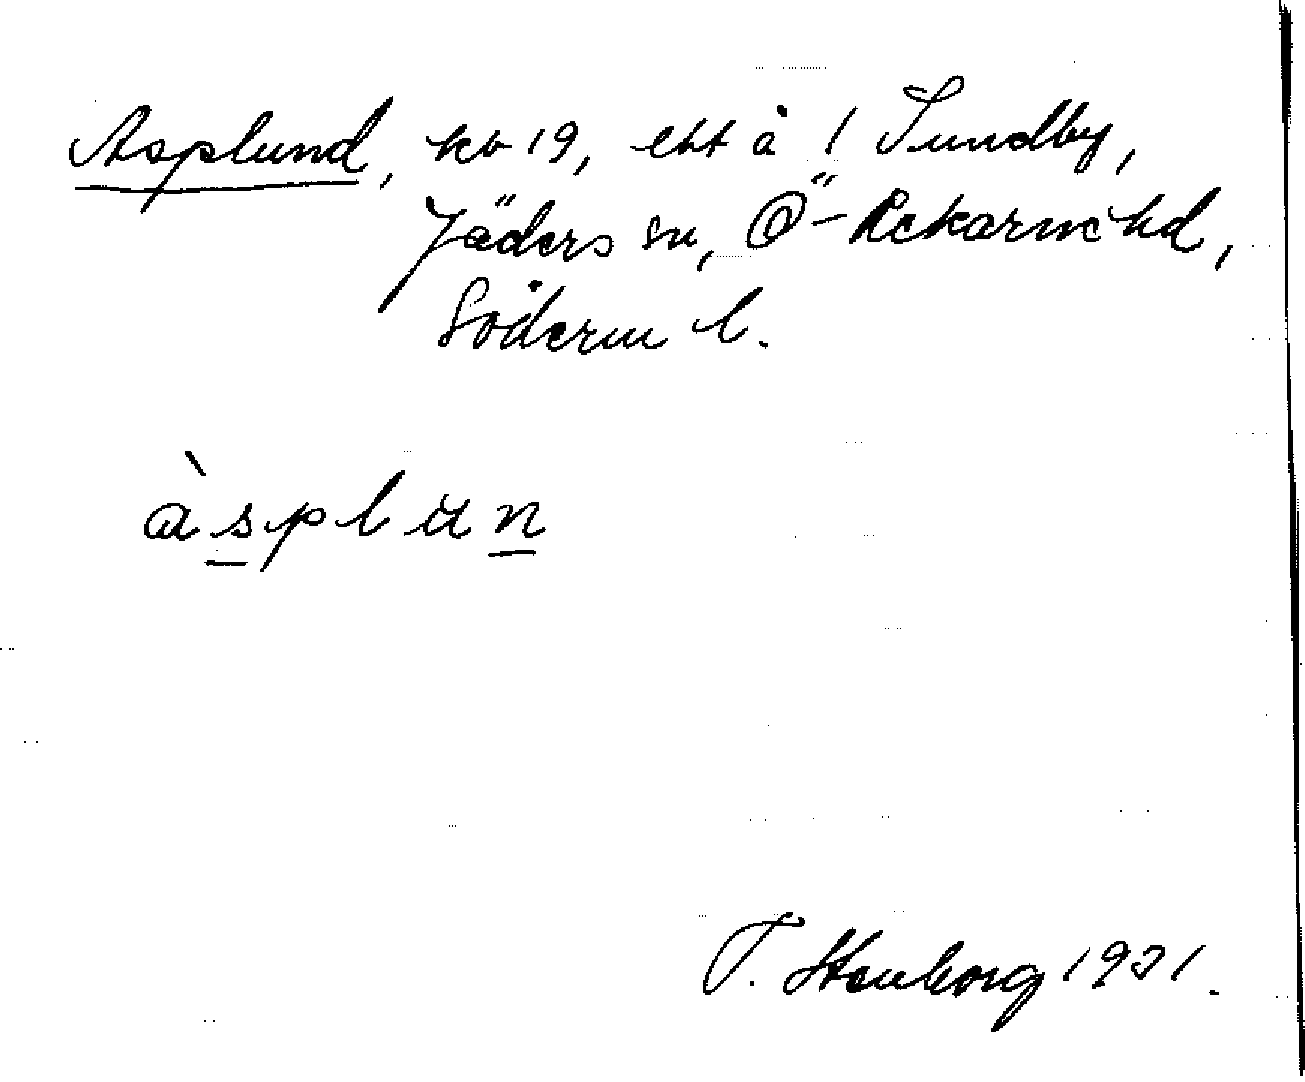 Asplund, kb 19, ett å 1 Sundby,
Jäders sn, Ö-Rekarne hd,
Söderm l.
àsplun
T. Stenborg 1931.